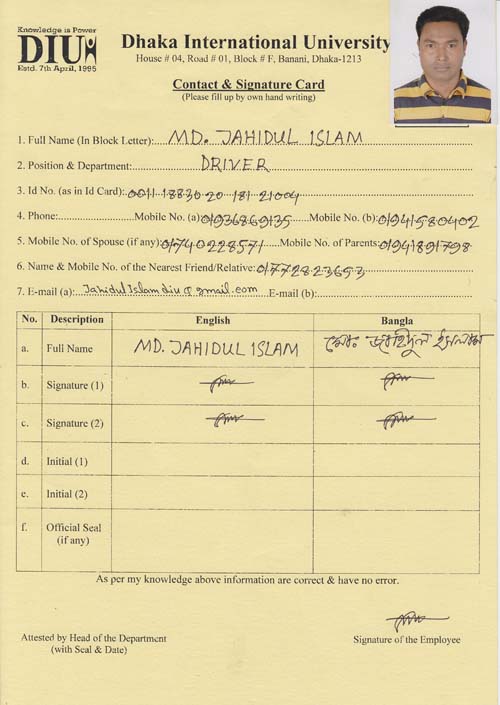 Knowledge is Power
DIU
Estd. 7th April, 1995
Dhaka International University
House # 04, Road # 01, Block # F, Banani, Dhaka-1213
Contact & Signature Card
(Please fill up by own hand writing)
1. Full Name (In Block Letter): MD. JAHIDUL ISLAM
2. Position & Department: DRIVER
3. Id No. (as in Id Card): 0011 18830 20 181 21004
4. Phone: Mobile No. (a) 01936869135 Mobile No. (b): 01941580402
5. Mobile No. of Spouse (if any) 01740228571 Mobile No. of Parents 01941891798
6. Name & Mobile No. of the Nearest Friend/Relative: 01772823653
7. E-mail (a): Jahidul Islam diu@gmail.com E-mail (b):
No. Description English Bangla
a. Full Name MD. JAHIDUL ISLAM মোঃ জাহিদুল ইসলাম
b. Signature (1)
c. Signature (2)
d. Initial (1)
e. Initial (2)
f. Official Seal
(if any)
As per my knowledge above information are correct & have no error.
Attested by Head of the Department
(with Seal & Date)
Signature of the Employee